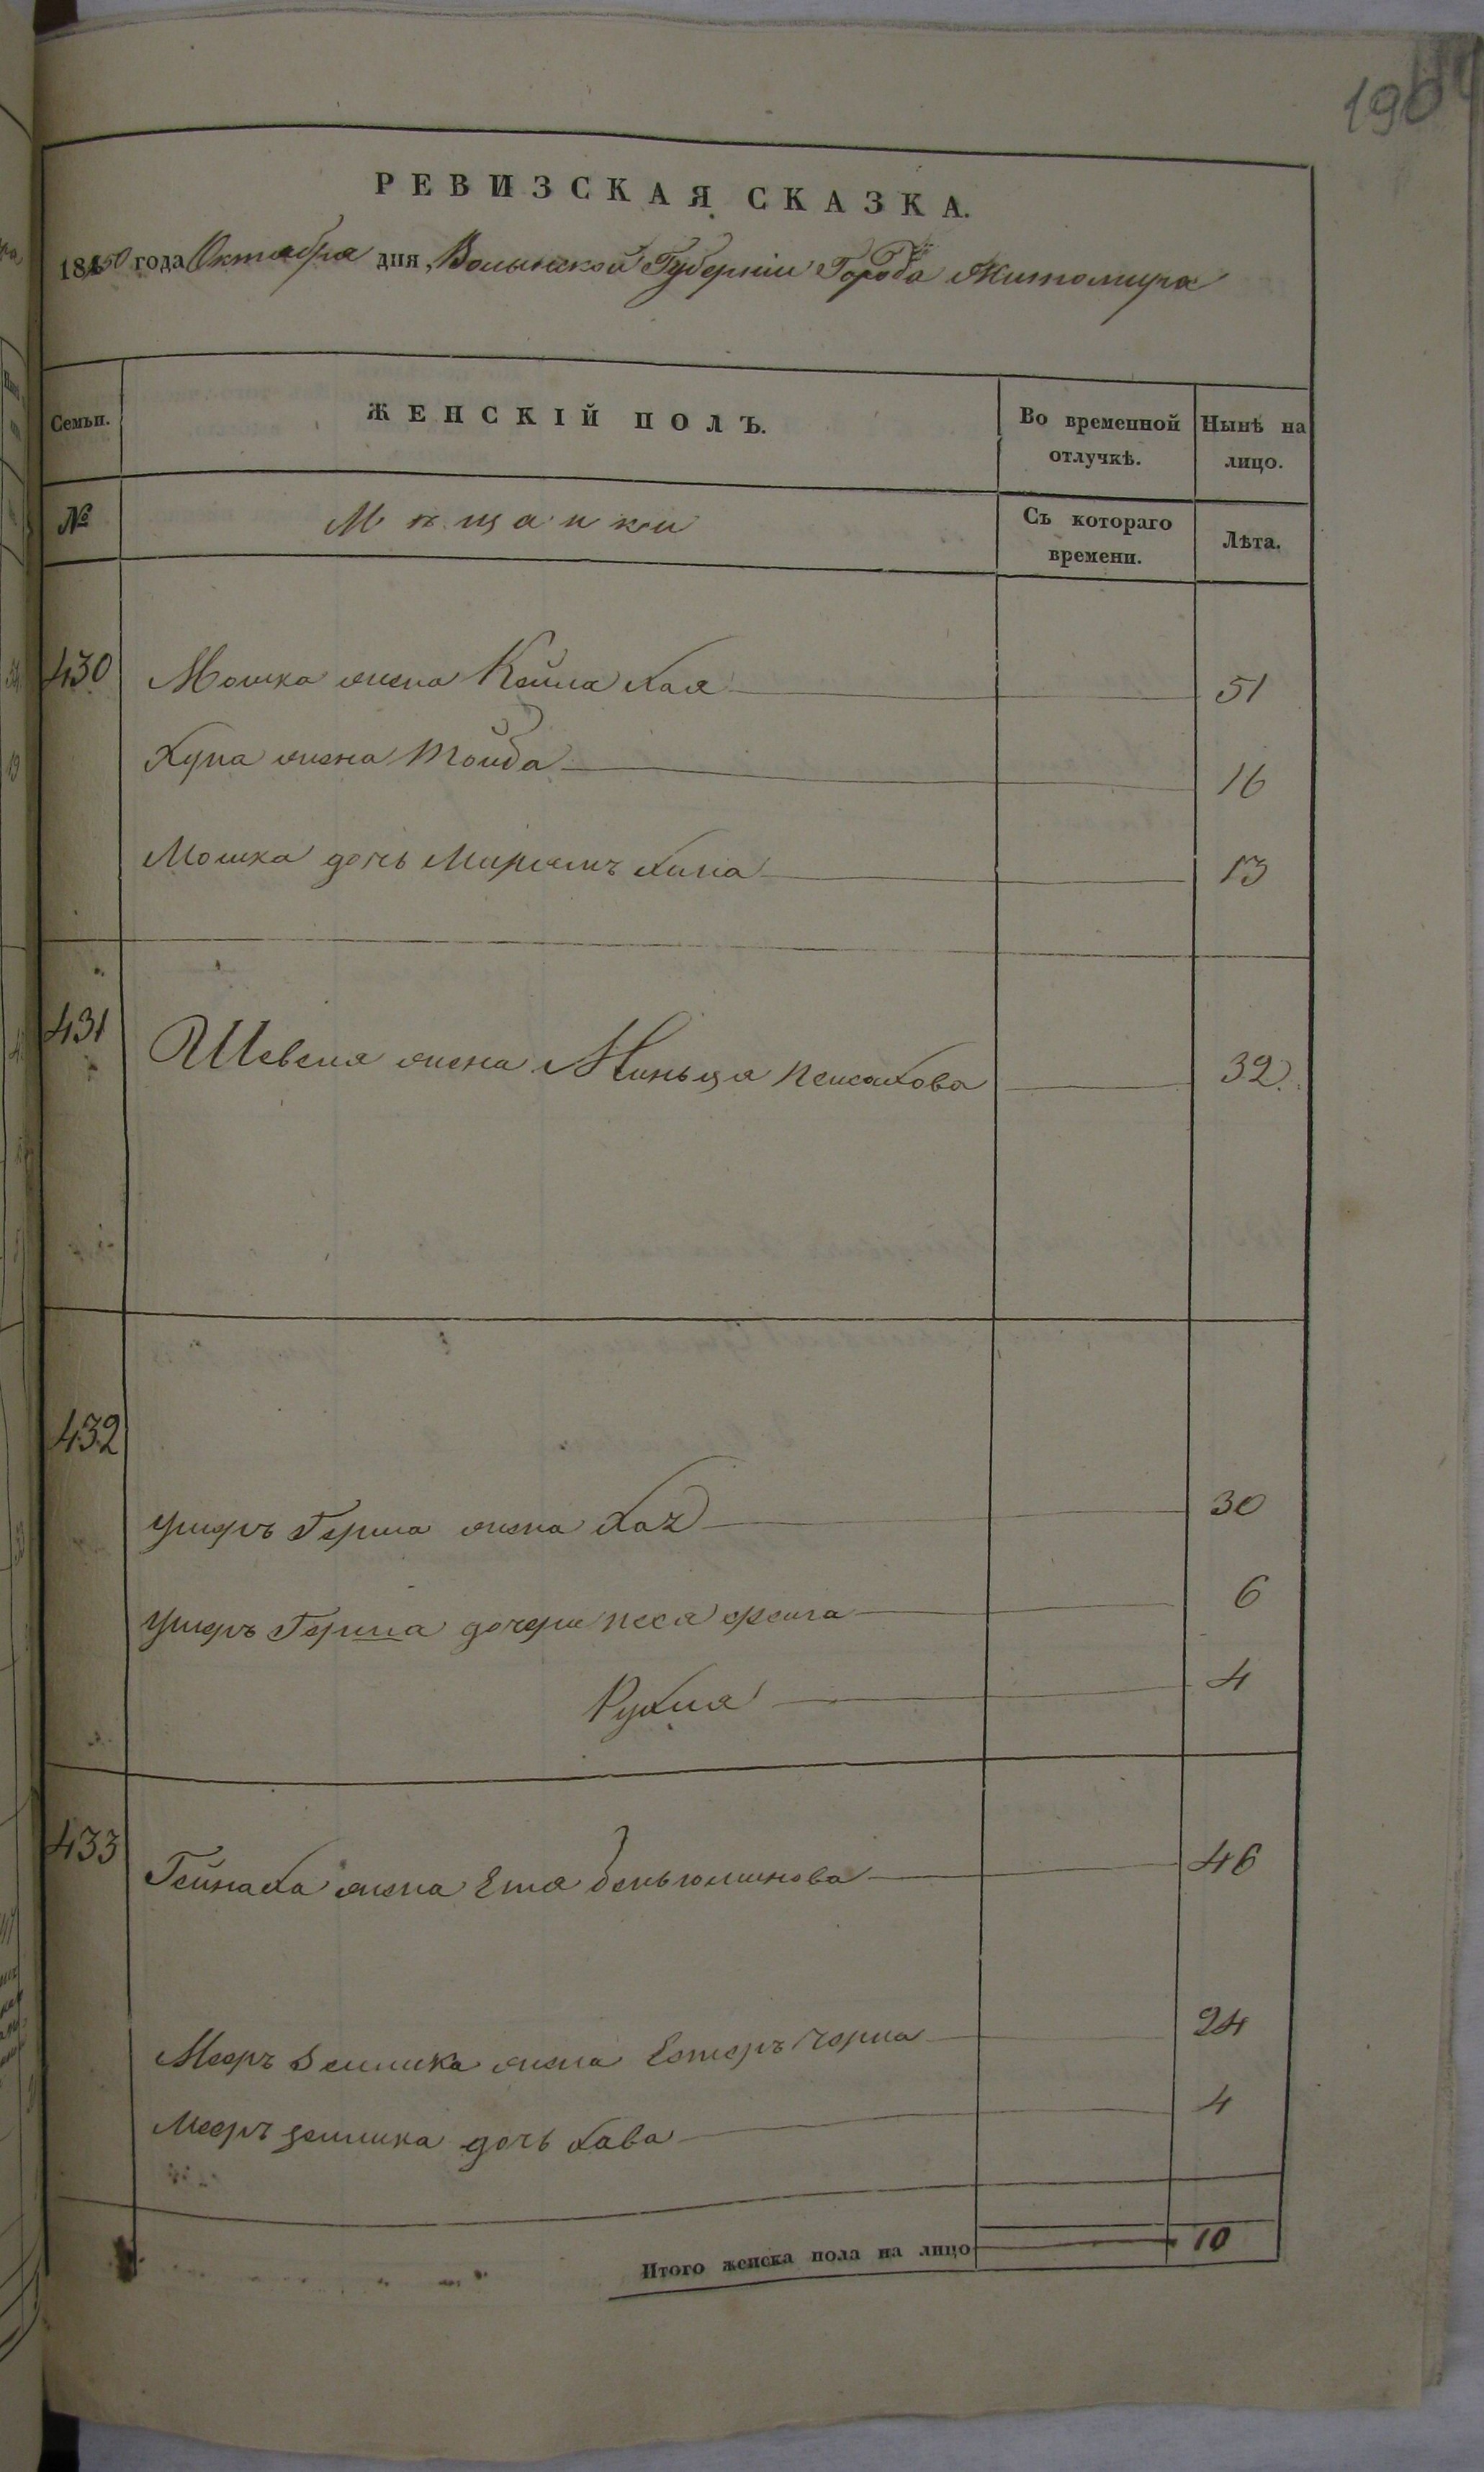 190
РЕВИЗСКАЯ СКАЗКА.
1850 года Октября дня, Волынской Губерніи Города Житомира
Семьи. ЖЕНСКІЙ ПОЛЪ. Во временной отлучкѣ. Нынѣ на лицо.
№ Мѣщанки Съ котораго времени. Лѣта.
430 Мошка жена Кейла Хая 51
Хуна жена Тойба 16
Мошка дочь Маріямъ Хана 13
431 Шевеля жена Миньця Пейсахова 32.
432
Ушеръ Герша жена Хая 30
Ушеръ Герша дочери Песя Фейга 6
Рухля 4
433 Гейнаха жена Етя Беньюминова 46
Мееръ Зелика жена Естеръ Черна 24
Мееръ Зелика дочь Хава 4
Итого женска пола на лицо 10